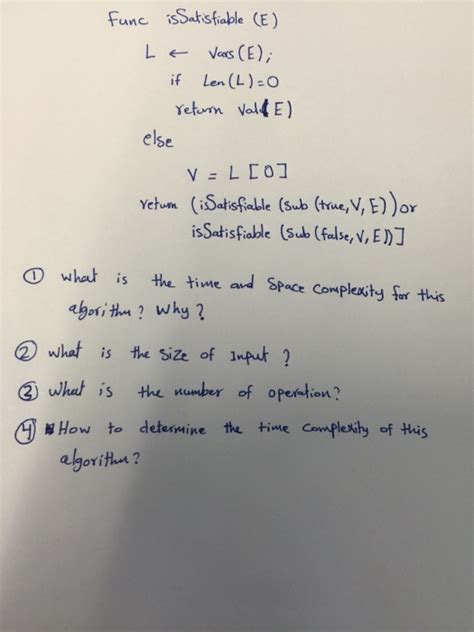 Func isSatisfiable (E)
L ← Vars (E);
if Len(L)=0
return Val(E)
else
V = L [0]
return (isSatisfiable (sub (true, V, E)) or
isSatisfiable (sub (false, V, E))]
① What is the time and space complexity for this
algorithm? Why?
② What is the size of Input ?
③ What is the number of operation?
④ How to determine the time complexity of this
algorithm?